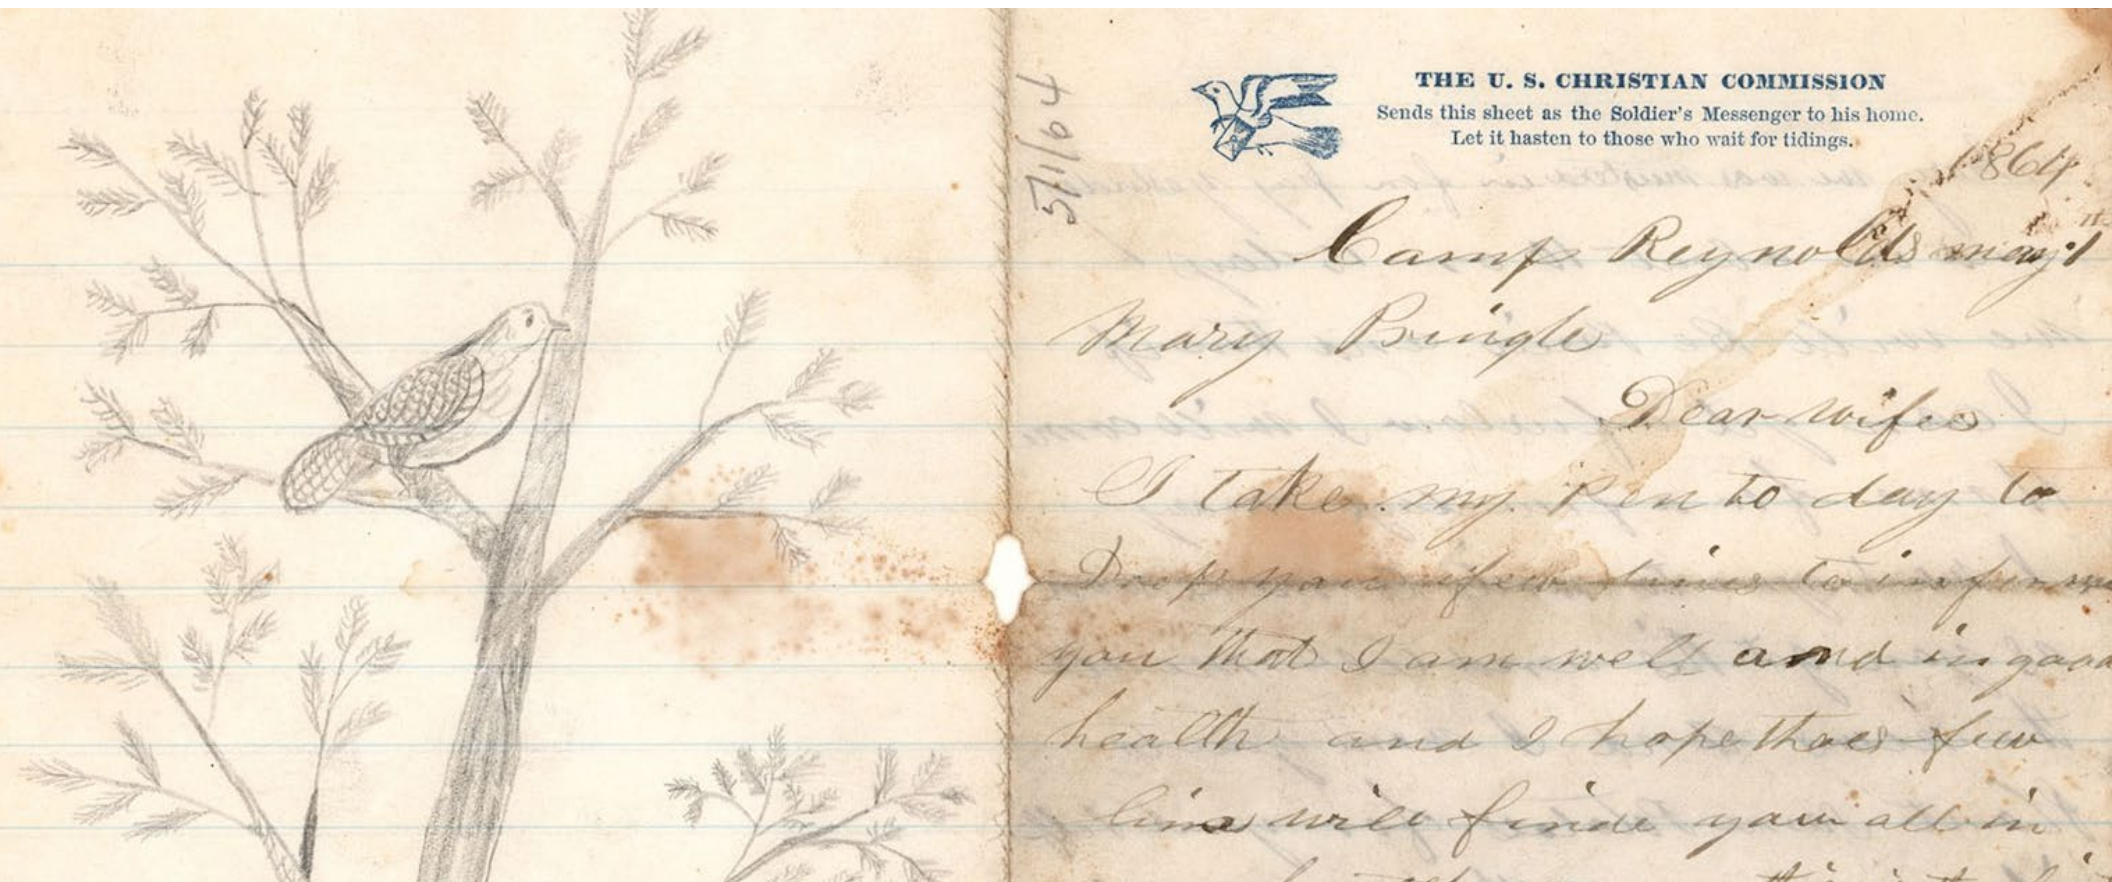 5/1/64
THE U. S. CHRISTIAN COMMISSION
Sends this sheet as the Soldier's Messenger to his home.
Let it hasten to those who wait for tidings.
1864
Camp Reynolds may 1
Mary Pringle
Dear wife
I take my pen to day to
Drop you a few lines to inform
you that I am well and in good
health and I hope thaes few
lines will finde you all in